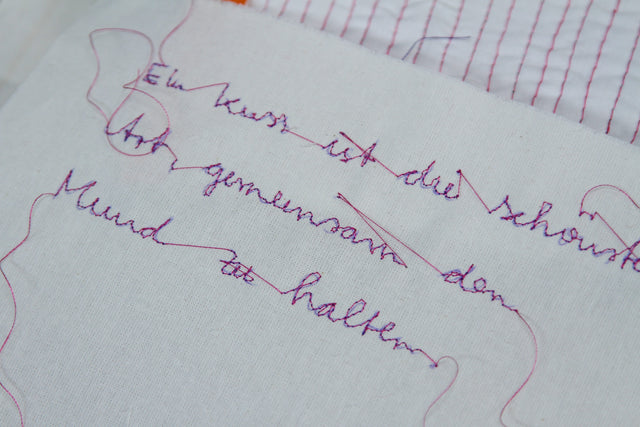 Ein kuss ist die schönste
Art, gemeinsam den
Mund zu halten